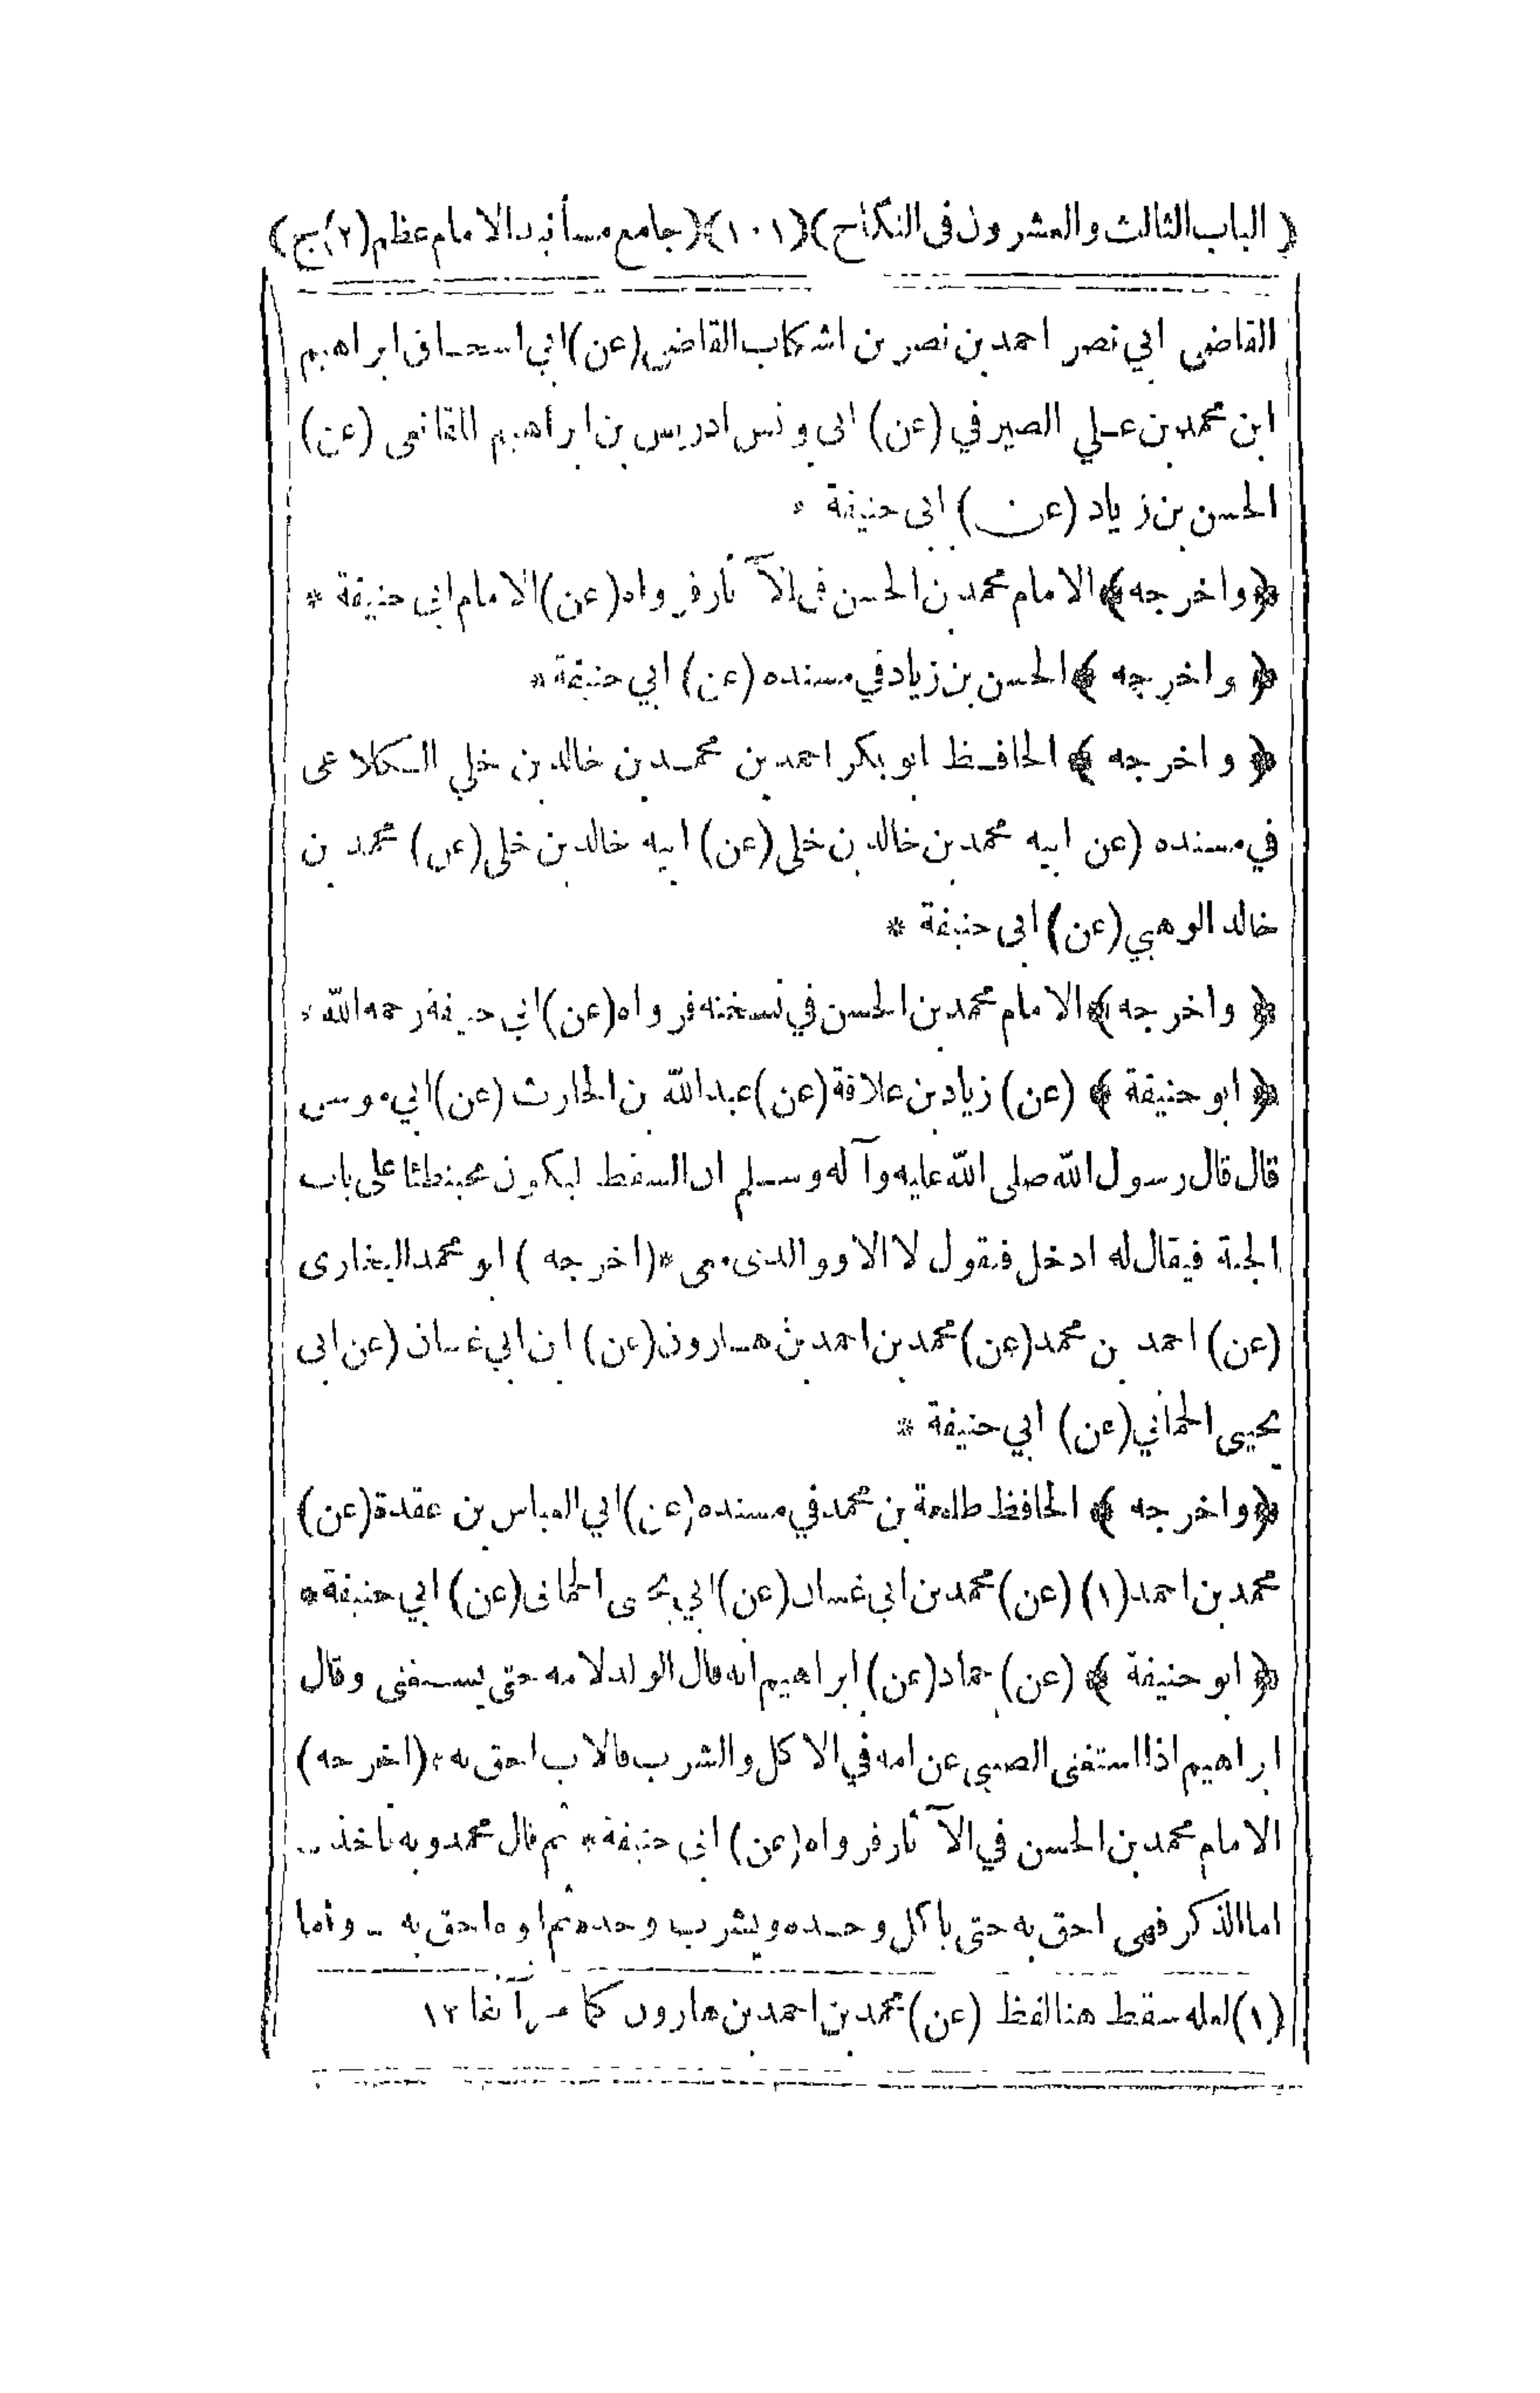 ( الباب الثالث والعشرون فى النكاح )(١٠١)( جامع مسانيد الامام عظم (٢) ج)
القاضى ابي نصر احمد بن نصر بن اشكاب القاضى (عن) ابي اسحاق ابراهيم
ابن محمد بن علي الصيرفي (عن) ابى يونس ادريس بن ابراهيم المقانعى (عن)
الحسن بن زياد (عن) ابى حنيفة *
﴿واخرجه﴾ الامام محمد بن الحسن فى الآثار فرواه (عن) الامام ابى حنيفة *
﴿ واخرجه ﴾ الحسن بن زياد في مسنده (عن) ابي حنيفة *
﴿ واخرجه ﴾ الحافظ ابو بكر احمد بن محمد بن خالد بن خلي الكلاعى
في مسنده (عن ابيه محمد بن خالد بن خلى (عن) ابيه خالد بن خلى (عن) محمد بن
خالد الوهبي (عن) ابى حنيفة *
﴿ واخرجه ﴾ الامام محمد بن الحسن في نسخته فرواه (عن) ابي حنيفة رحمه الله *
﴿ ابو حنيفة ﴾ (عن) زياد بن علاقة (عن) عبد الله بن الحارث (عن) ابي موسى
قال قال رسول الله صلى الله عليه وآله وسلم ان السقط ليكون محبنطئا على باب
الجنة فيقال له ادخل فيقول لا الا ووالدى معى *(اخرجه ) ابو محمد البخارى
(عن) احمد بن محمد (عن) محمد بن احمد بن هارون (عن) ابن ابي غسان (عن ابى
يحيى الحماني (عن) ابي حنيفة *
﴿واخرجه ﴾ الحافظ طلحة بن محمد في مسنده (عن) ابي العباس بن عقدة (عن)
محمد بن احمد (١) (عن) محمد بن ابى غسان (عن) ابي يحيى الحمانى (عن) ابي حنيفة *
﴿ ابو حنيفة ﴾ (عن) حماد (عن) ابراهيم انه قال الولد لامه حتى يستغنى وقال
ابراهيم اذا استغنى الصبي عن امه في الاكل والشرب فالاب احق به *(اخرجه)
الامام محمد بن الحسن في الآثار فرواه (عن) ابى حنيفة * ثم قال محمد وبه نأخذ ـ
اما الذكر فهى احق به حتى يأكل وحده ويشرب وحده ثم ابوه احق به ـ وأما
(١) لعله سقط هنا لفظ (عن) محمد بن احمد بن هارون كما مر آنفا ١٢